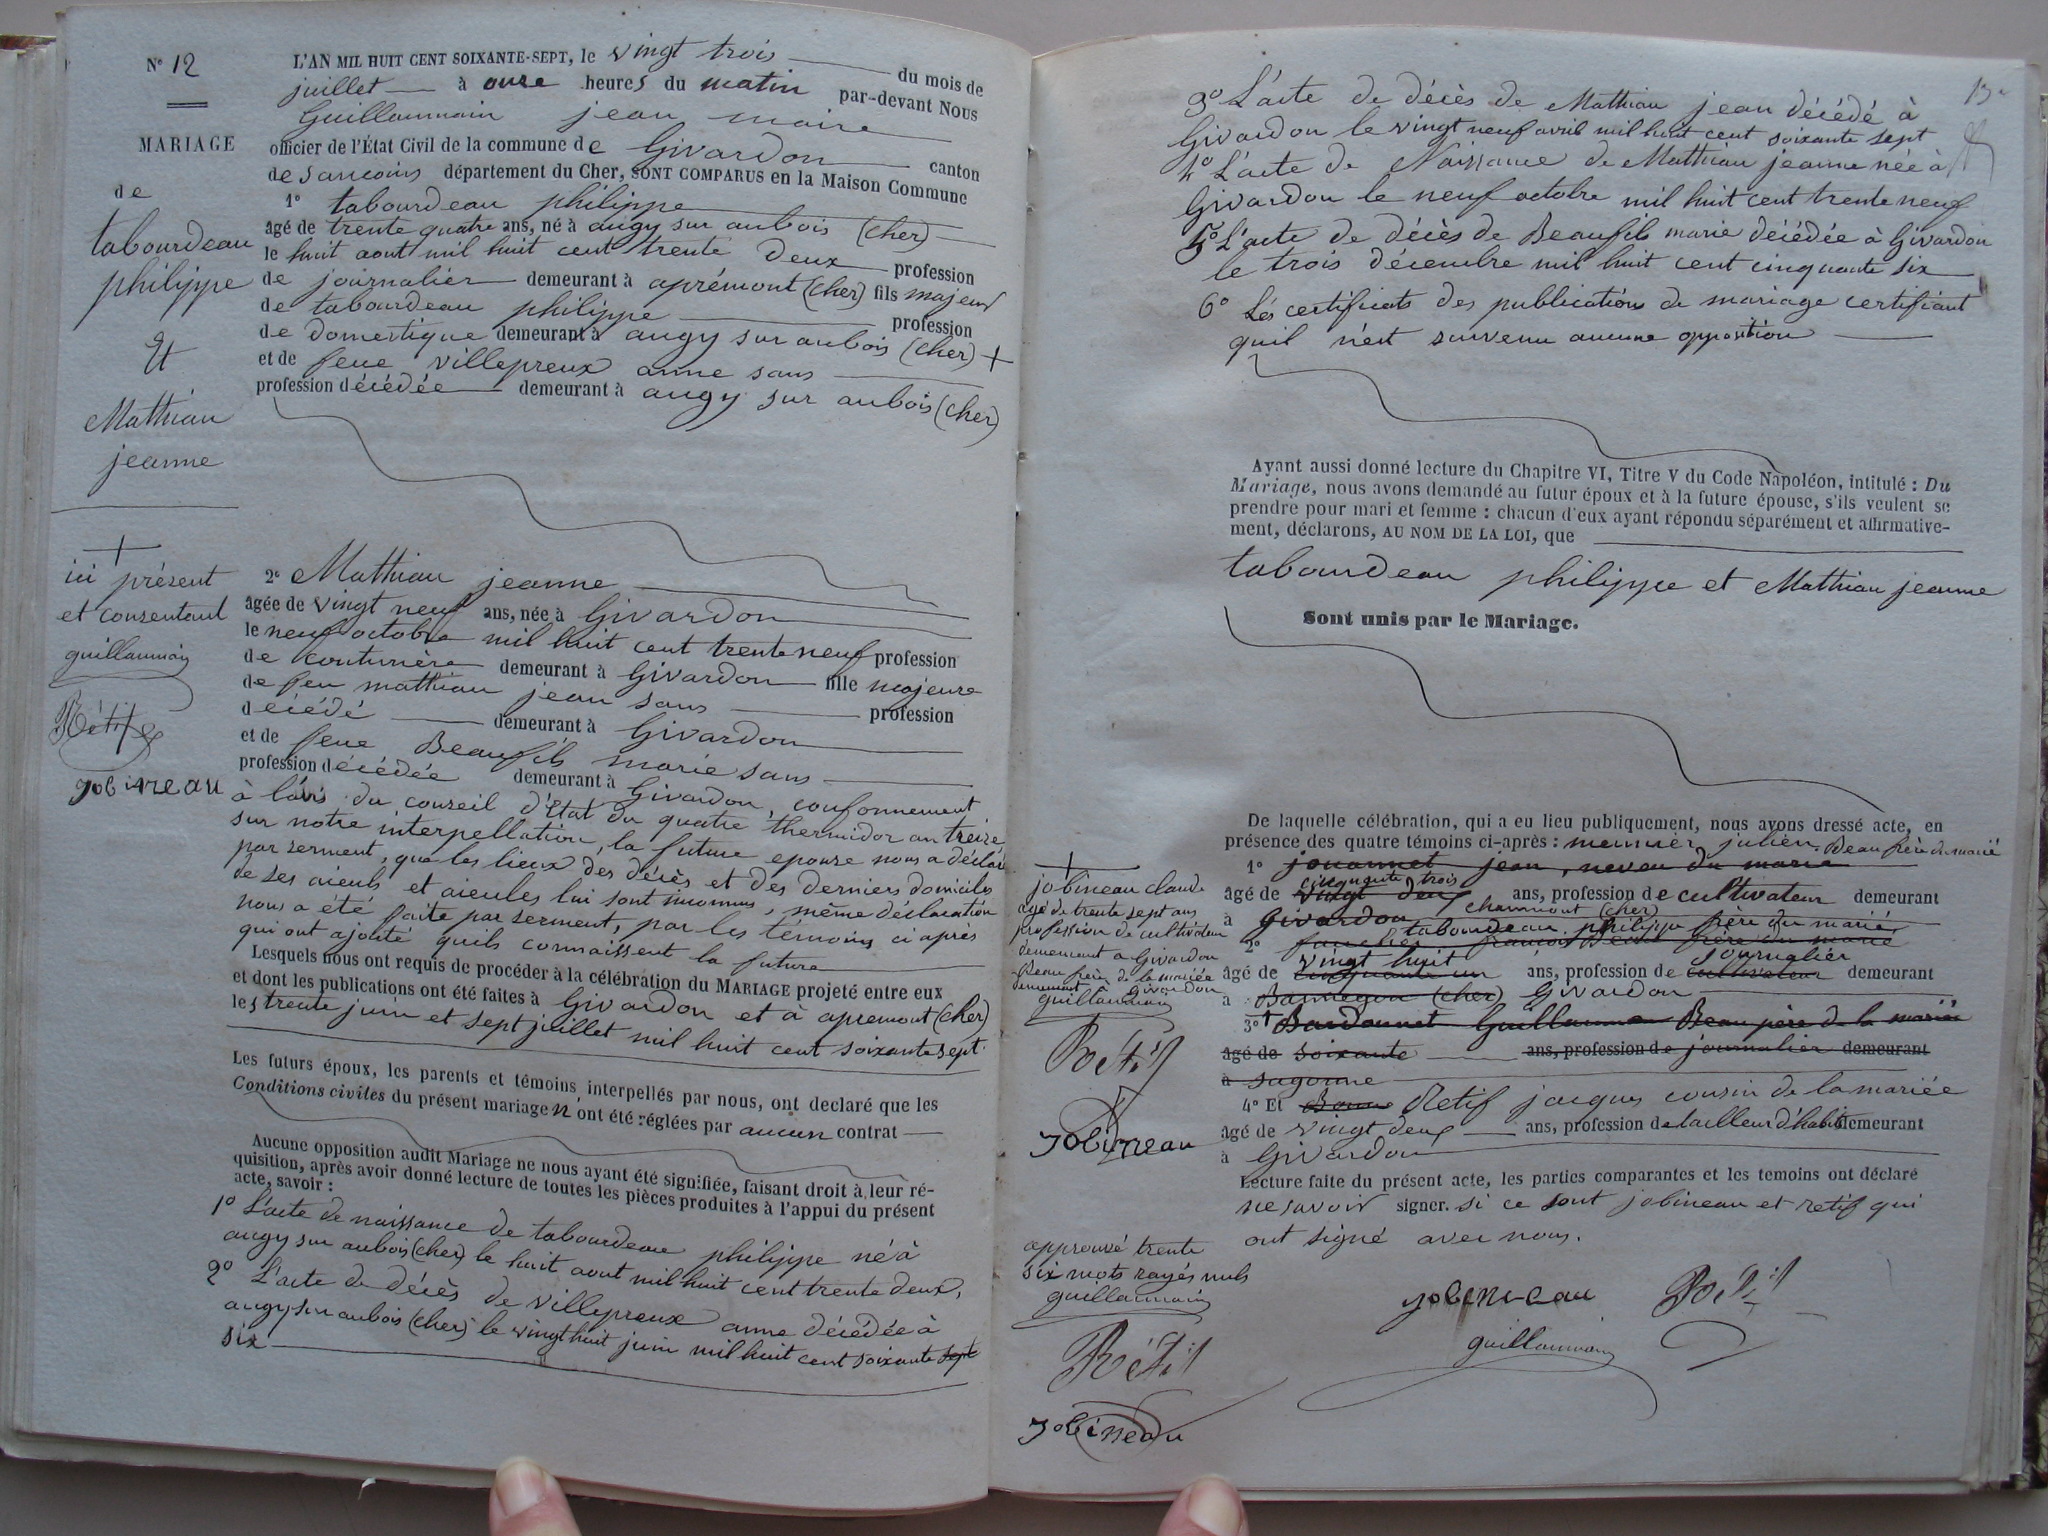 N° 12
MARIAGE
de
tabourdeau
philippe
Et
Mathiau
jeanne
+
ici présent
et consentant
guillaumain
Rétif
jobineau
L'AN MIL HUIT CENT SOIXANTE-SEPT, le vingt trois du mois de
juillet à onze heures du matin par-devant Nous
Guillaumain jean maire
officier de l'État Civil de la commune de Givardon canton
de Sancoins département du Cher, SONT COMPARUS en la Maison Commune
1° tabourdeau philippe
âgé de trente quatre ans, né à augy sur aubois (cher)
le huit aout mil huit cent trente deux profession
de journalier demeurant à aprémont (cher) fils majeur
de tabourdeau philippe profession
de domestique demeurant à augy sur aubois (cher) +
et de feue villepreux anne sans
profession décédée demeurant à augy sur aubois (cher)
2° Mathiau jeanne
âgée de vingt neuf ans, née à Givardon
le neuf octobre mil huit cent trente neuf profession
de couturière demeurant à Givardon fille majeure
de feu mathiau jean sans profession
décédé demeurant à Givardon
et de feue Beaufils marie sans
profession décédée demeurant à Givardon, confonnement
à lavis du conseil d'Etat du quatre thermidor an treize
sur notre interpellation, la future epouse nous a déclaré
par serment, que les lieux des décès et des derniers domiciles
de ses aieuls et aieules lui sont inconnus, même déclaration
nous a été faite par serment, par les témoins ci après
qui ont ajouté quils connaissent la future
Lesquels nous ont requis de procéder à la célébration du MARIAGE projeté entre eux
et dont les publications ont été faites à Givardon et à apremont (cher)
les trente juin et sept juillet mil huit cent soixante sept.
Les futurs époux, les parents et témoins interpellés par nous, ont declaré que les
Conditions civiles du présent mariage n'ont été réglées par aucun contrat
Aucune opposition audit Mariage ne nous ayant été signifiée, faisant droit à leur ré-
quisition, après avoir donné lecture de toutes les pièces produites à l'appui du présent
acte, savoir :
1° L'acte de naissance de tabourdeau philippe né à
augy sur aubois (cher) le huit aout mil huit cent trente deux,
2° L'acte de décès de villepreux anne décédée à
augy sur aubois (cher) le vingt huit juin mil huit cent soixante sept
six
13
3° L'acte de décès de Mathiau jean décédé à
Givardon le vingt neuf avril mil huit cent soixante sept
4° L'acte de Naissance de Mathiau jeanne née à
Givardon le neuf octobre mil huit cent trente neuf
5° L'acte de décès de Beaufils marie décédée à Givardon
le trois décembre mil huit cent cinquante six
6° Les certificats des publications de mariage certifiant
quil n'est survenu aucune opposition
Ayant aussi donné lecture du Chapitre VI, Titre V du Code Napoléon, intitulé : Du
Mariage, nous avons demandé au futur époux et à la future épouse, s'ils veulent se
prendre pour mari et femme : chacun d'eux ayant répondu séparément et affirmative-
ment, déclarons, AU NOM DE LA LOI, que
tabourdeau philippe et Mathiau jeanne
Sont unis par le Mariage.
De laquelle célébration, qui a eu lieu publiquement, nous avons dressé acte, en
présence des quatre témoins ci-après : meunier julien Beau frère du marié
1° jouannet jean, neveu du marié
cinquante trois
âgé de vingt deux ans, profession de cultivateur demeurant
chaumont (cher)
à Givardon
tabourdeau philippe frère du marié,
2° foucher françois Beau frère du marié
vingt huit journalier
âgé de cinquante un ans, profession de cultivateur demeurant
à Bannegon (cher) Givardon
3° + Bardonnet Guillaume Beau père de la mariée
âgé de soixante ans, profession de journalier demeurant
à sagonne
4° Et Bonne Retif jacques cousin de la mariée
âgé de vingt deux ans, profession de tailleur d'habits demeurant
à Givardon
Lecture faite du présent acte, les parties comparantes et les temoins ont déclaré
ne savoir signer. si ce sont jobineau et retif qui
ont signé avec nous.
jobineau Rétif
guillaumain
+
jobineau claude
agé de trente sept ans
profession de cultivateur
demeurant a Givardon
Beau frère de la mariée
demeurant à Givardon
guillaumain
Rétif
Jobineau
approuvé trente
six mots rayés nuls
guillaumain
Rétif
Jobineau